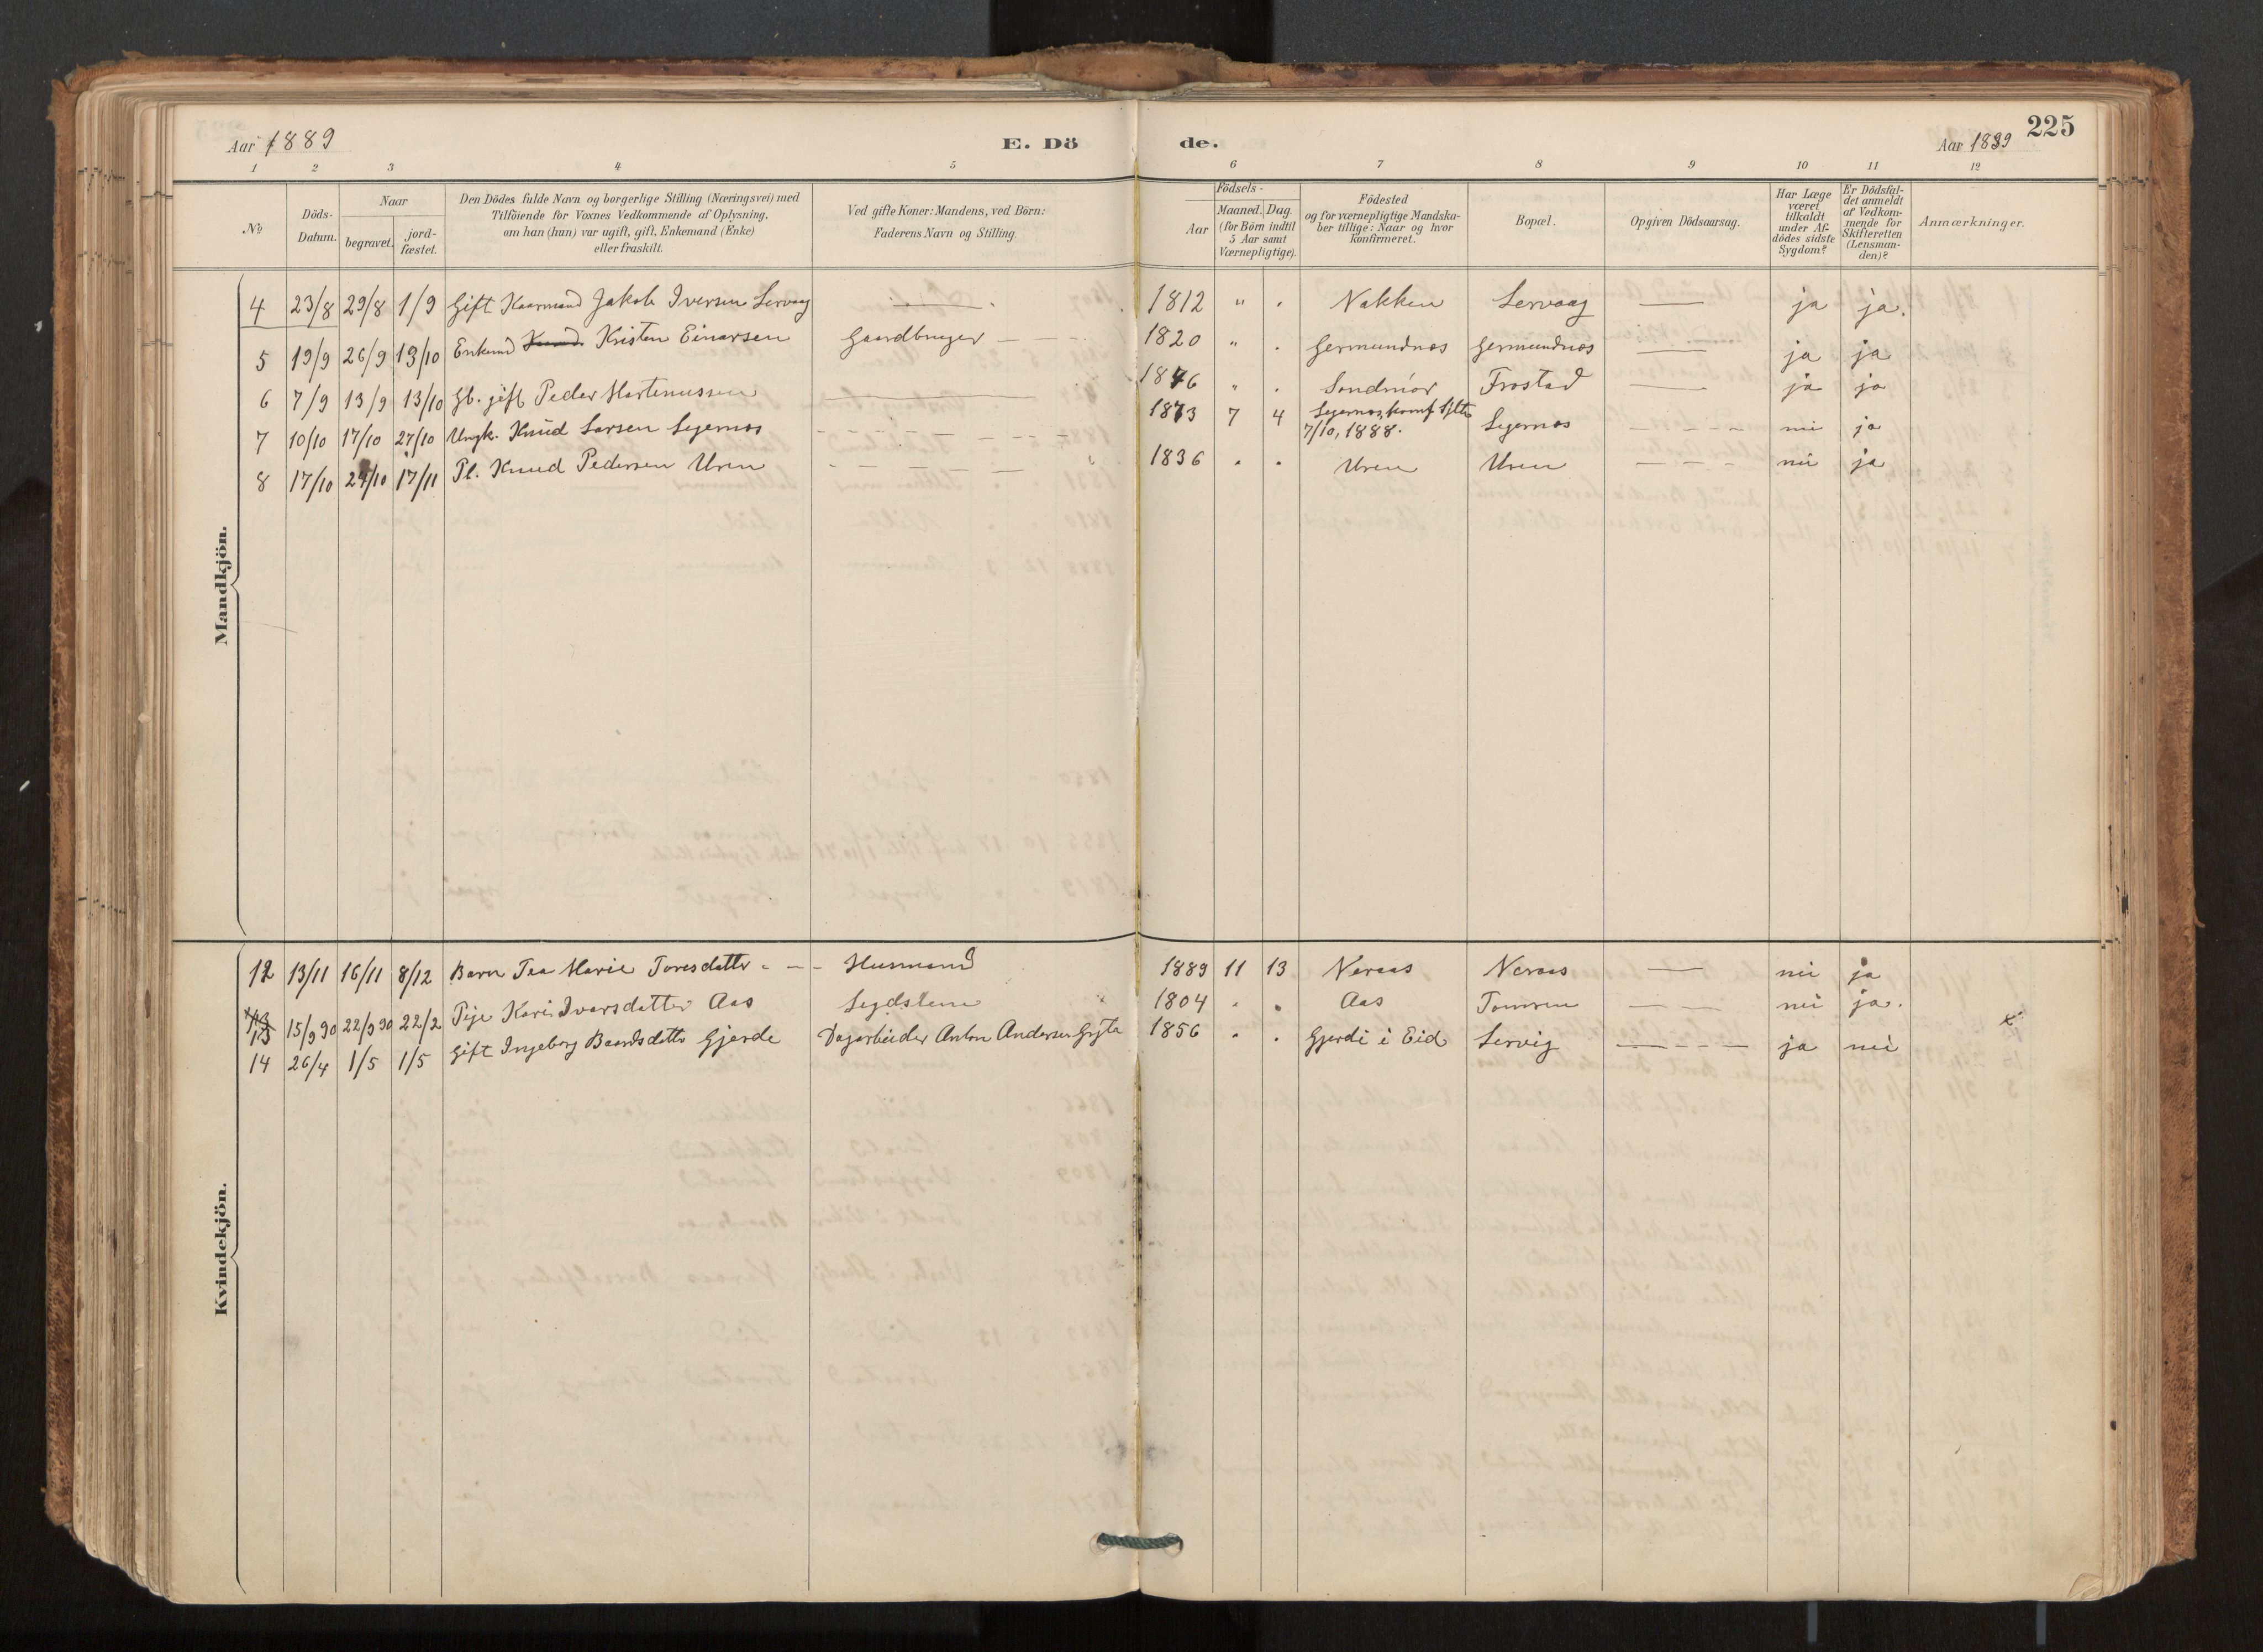 Aar 1889 E. Dö de. Aar 1889 225
1 2 3 4 5 6 7 8 9 10 11 12
No. Döds-Datum. Naar begravet. jord-fæstet. Den Dödes fulde Navn og borgerlige Stilling (Næringsvei) med Tilföiende for Voxnes Vedkommende af Oplysning, om han (hun) var ugift, gift, Enkemand (Enke) eller fraskilt. Ved gifte Koner: Mandens, ved Börn: Faderens Navn og Stilling. Födsels- Aar Maaned. Dag. (for Börn indtil 5 Aar samt Værnepligtige). Födested og for værnepligtige Mandska-ber tillige: Naar og hvor konfirmeret. Bopæl. Opgiven Dödsaarsag. Har Læge været tilkaldt under Af-dödes sidste Sygdom? Er Dödsfal-det anmeldt af Vedkom-mende for Skifteretten (Lensman-den)? Anmærkninger.
Mandkjön.
4 23/8 29/8 1/9 Gift Kaarmand Jakob Iversen Lervaag — 1812 " . Nakken Lervaag — ja ja.
5 19/9 26/9 13/10 Enkemd Knud Kristen Einarsen Gaardbruger — 1820 " . Germundnæs Germundnæs — ja ja
6 7/9 13/9 13/10 Gb. gift Peder Martinussen — 1846 " . Söndmör Frostad — ja ja
7 10/10 17/10 27/10 Ungk. Knud Larsen Legernæs - - - 1873 7 4 Legernæs, konf. 7/10, 1888. Legernæs - - - nei ja
8 17/10 24/10 17/11 Pl. Knud Pedersen Uren - - - 1836 . . Uren Uren - - - nei ja
Kvindekjön.
12 13/11 16/11 8/12 Barn Tea Marie Toresdatter - - - Husmand 1889 11 13 Neraas Neraas — nei ja
13 15/9 90 22/9 90 22/2 Pige Kari Ivarsdatter Aas Legdslem 1804 . . Aas Tomren — nei ja.
14 26/4 1/5 1/5 Gift Ingeborg Baardsdatter Gjerde Dagarbeider Anton Andersen Gryta 1856 . . Gjerde i Eid Lervig — - - - ja nei x